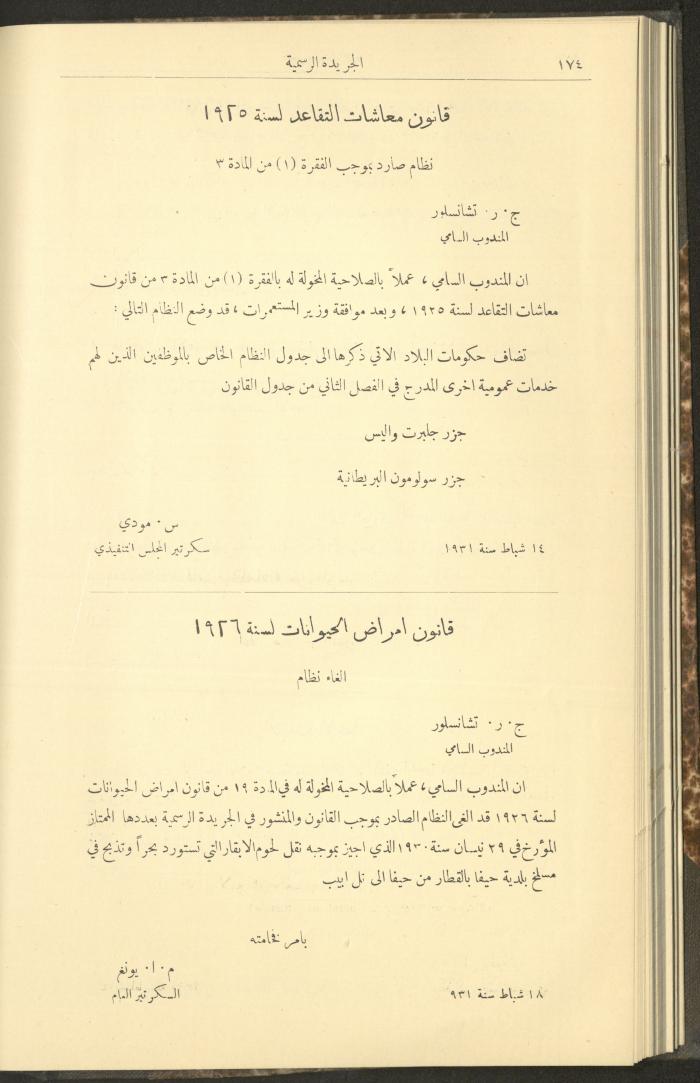 ١٧٤
الجريدة الرسمية
قانون معاشات التقاعد لسنة ١٩٢٥
نظام صارد بموجب الفقرة (١) من المادة ٣
ج . ر . تشانسلور
المندوب السامي
ان المندوب السامي ، عملاً بالصلاحية المخولة له بالفقرة (١) من المادة ٣ من قانون
معاشات التقاعد لسنة ١٩٢٥ ، وبعد موافقة وزير المستعمرات ، قد وضع النظام التالي :
تضاف حكومات البلاد الاتي ذكرها الى جدول النظام الخاص بالموظفين الذين لهم
خدمات عمومية اخرى المدرج في الفصل الثاني من جدول القانون
جزر جلبرت واليس
جزر سولومون البريطانية
س . مودي
١٤ شباط سنة ١٩٣١
سكرتير المجلس التنفيذي
قانون امراض الحيوانات لسنة ١٩٢٦
الغاء نظام
ج . ر . تشانسلور
المندوب السامي
ان المندوب السامي ، عملاً بالصلاحية المخولة له في المادة ١٩ من قانون امراض الحيوانات
لسنة ١٩٢٦ قد الغى النظام الصادر بموجب القانون والمنشور في الجريدة الرسمية بعددها الممتاز
المؤرخ في ٢٩ نيسان سنة ١٩٣٠ الذي اجيز بموجبه نقل لحوم الابقار التي تستورد بحراً وتذبح في
مسلخ بلدية حيفا بالقطار من حيفا الى تل ابيب
بامر فخامته
م . ا . يونغ
١٨ شباط سنة ٩٣١
السكرتير العام